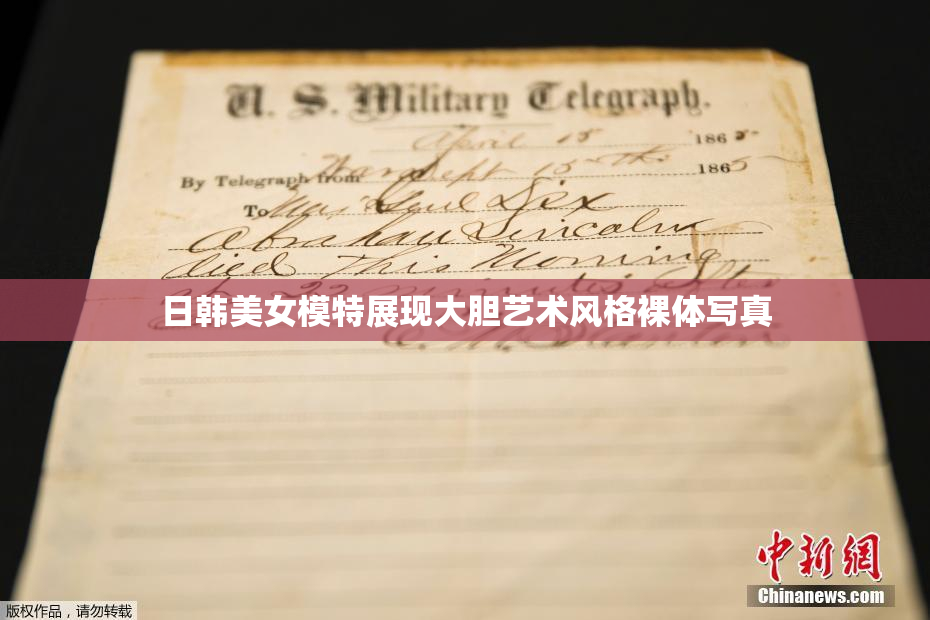 U. S. Military Telegraph.
April 15 1865
By Telegraph from War Dept 15th 1865
To Maj Genl Dix
Abraham Lincoln
died This Morning
at 22 minutes after
日韩美女模特展现大胆艺术风格裸体写真
E. M. Stanton
中新网
Chinanews.com
版权作品，请勿转载